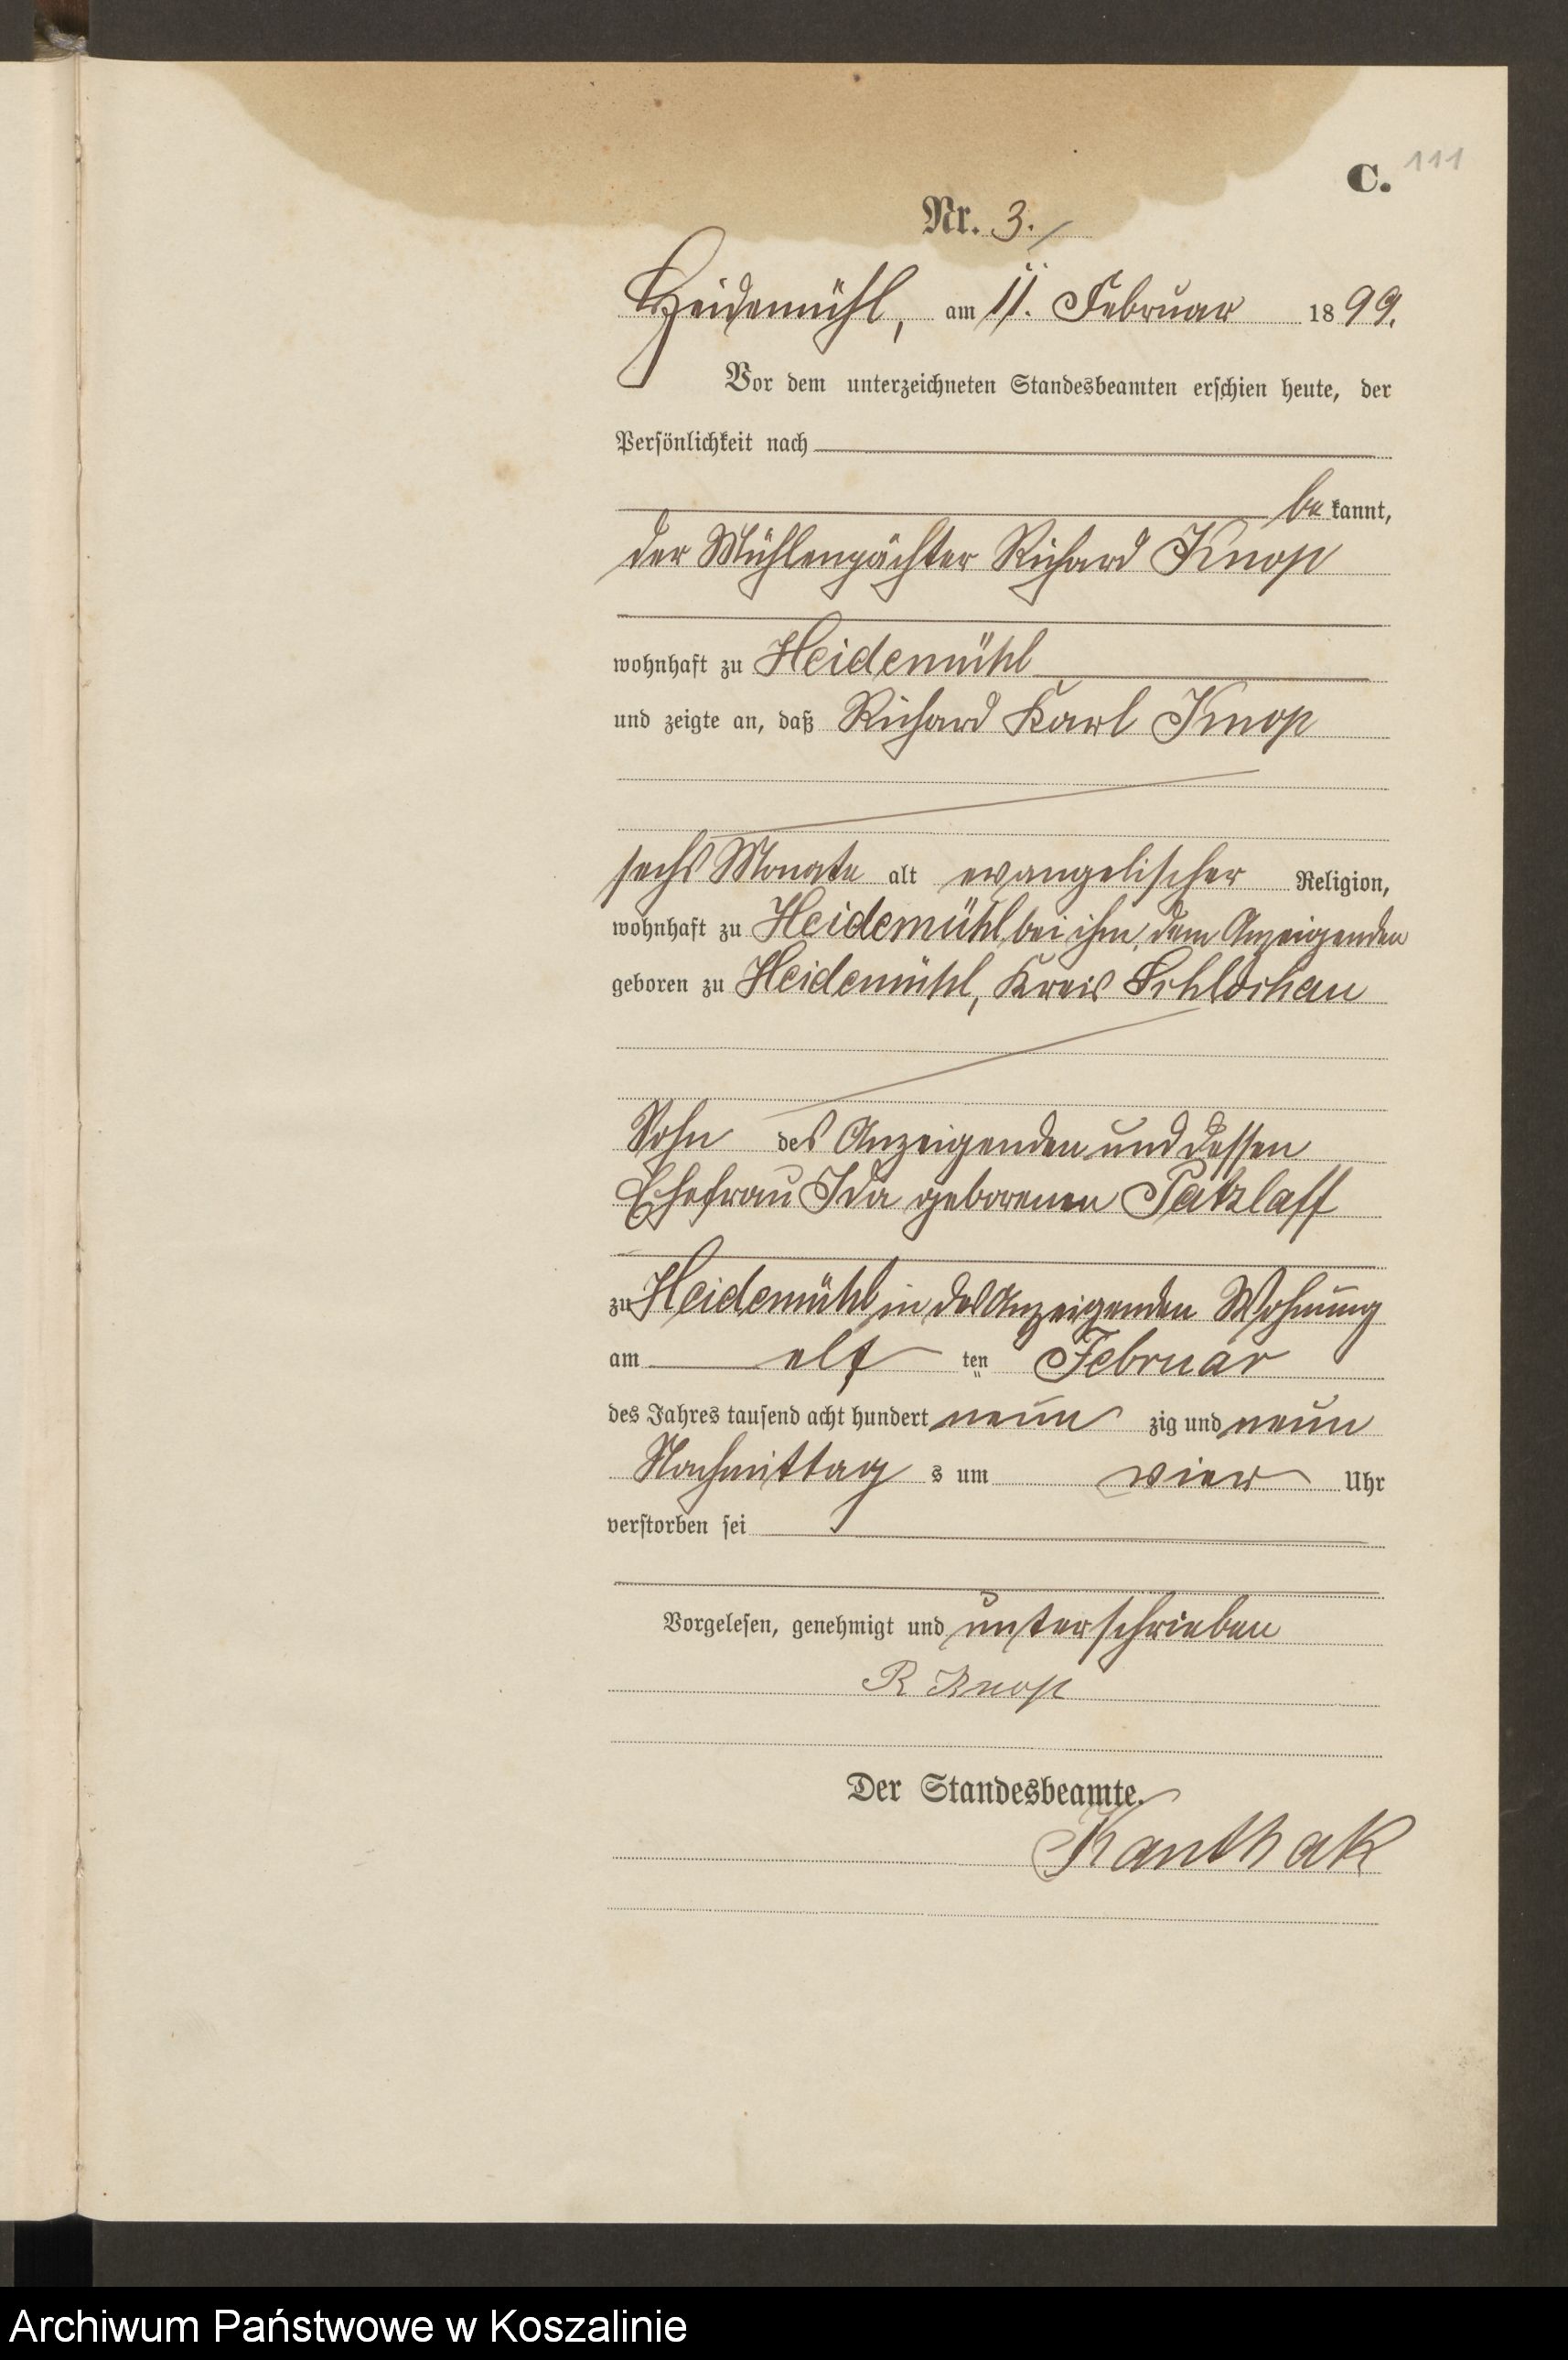 C. 111
Nr. 3.
Heidemühl, am 11. Februar 1899.
Vor dem unterzeichneten Standesbeamten erschien heute, der
Persönlichkeit nach
bekannt,
der Mühlenpächter Richard Knop
wohnhaft zu Heidemühl
und zeigte an, daß Richard Karl Knop
sechs Monate alt evangelischer Religion,
wohnhaft zu Heidemühl, bei ihm, dem Anzeigenden
geboren zu Heidemühl, Kreis Schlochau
Sohn des Anzeigenden und dessen
Ehefrau Ida geborenen Patzlaff
zu Heidemühl in des Anzeigenden Wohnung
am elf ten Februar
des Jahres tausend acht hundert neun zig und neun
Nachmittag s um vier Uhr
verstorben sei
Vorgelesen, genehmigt und unterschrieben
R Knop
Der Standesbeamte.
Kanthak
Archiwum Państwowe w Koszalinie